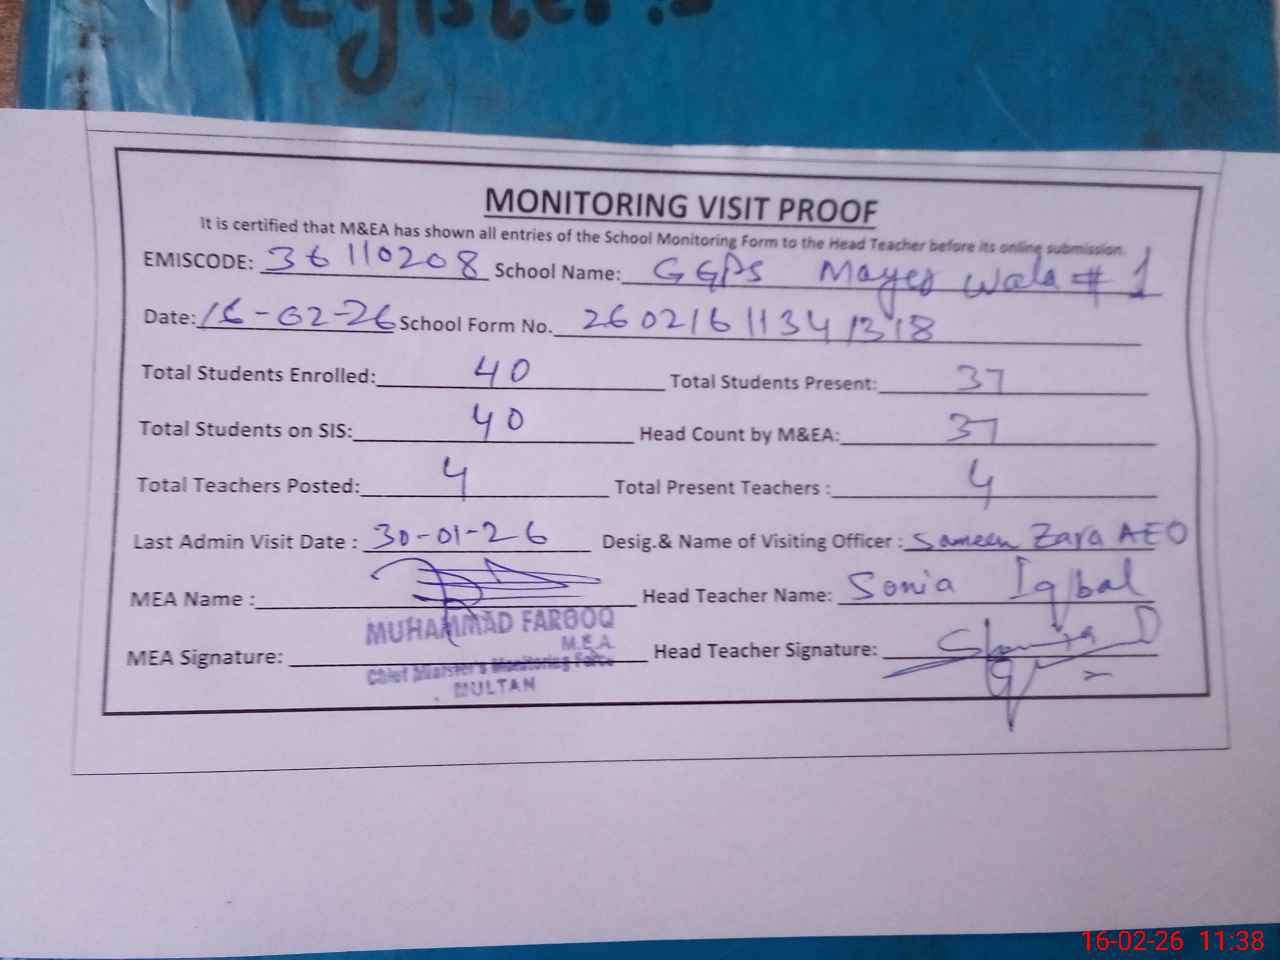 Register :-
MONITORING VISIT PROOF
It is certified that M&EA has shown all entries of the School Monitoring Form to the Head Teacher before its online submission.
EMISCODE: 36110208 School Name: GGPS Mayee Wala # 1
Date: 16-02-26 School Form No. 26021611341318
Total Students Enrolled: 40 Total Students Present: 37
Total Students on SIS: 40 Head Count by M&EA: 37
Total Teachers Posted: 4 Total Present Teachers : 4
Last Admin Visit Date : 30-01-26 Desig.& Name of Visiting Officer : Sameen Zara AEO
MEA Name : Head Teacher Name: Sonia Iqbal
MUHAMMAD FAROOQ
M.E.A.
MEA Signature: Head Teacher Signature:
Chief Minister's Monitoring Force
MULTAN
16-02-26 11:38